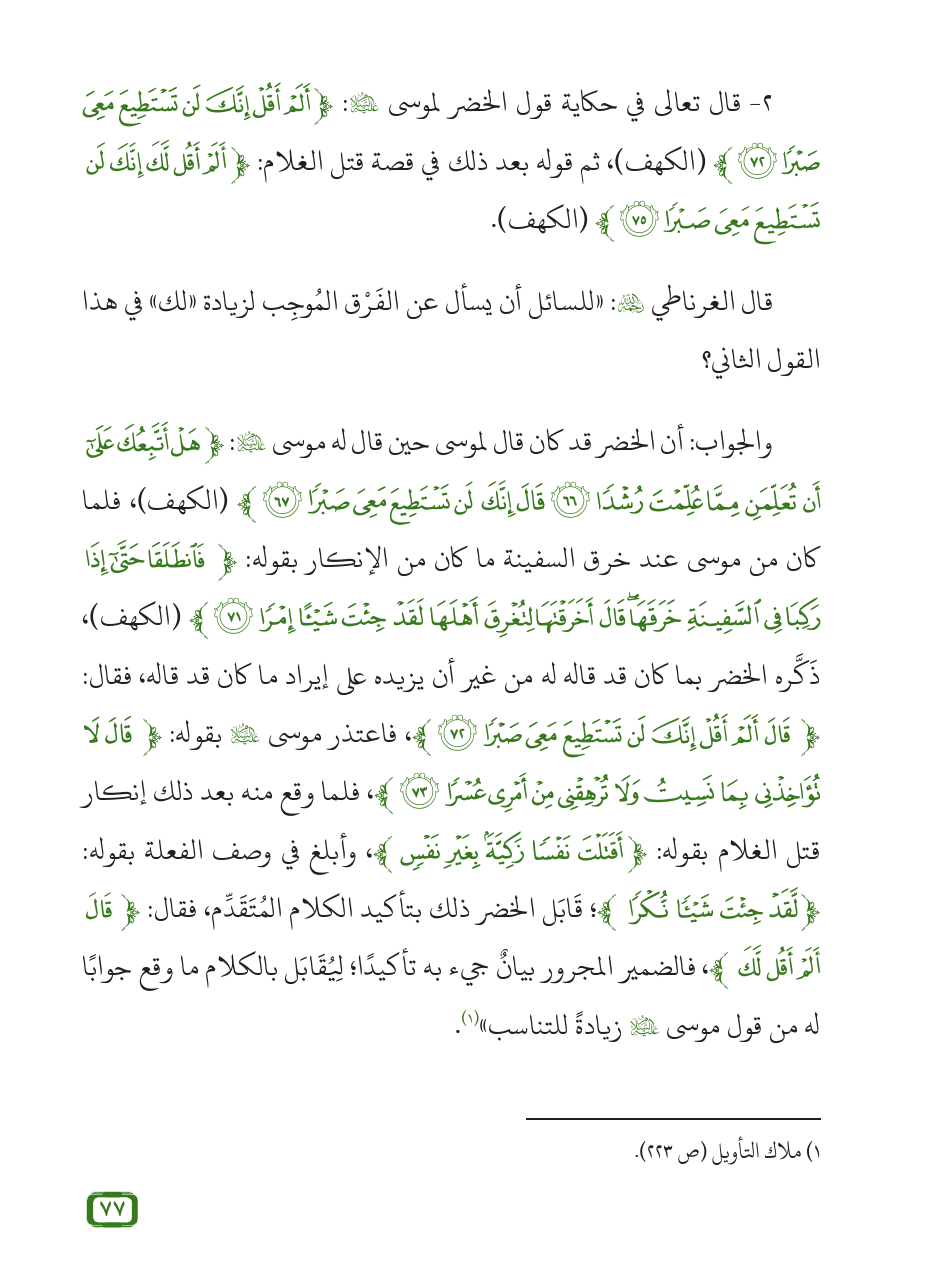 ٢- قال تعالى في حكاية قول الخضر لموسى ﵇: ﴿أَلَمۡ أَقُلۡ إِنَّكَ لَن تَسۡتَطِيعَ مَعِيَ
صَبۡرٗا ٧٢﴾ (الكهف)، ثم قوله بعد ذلك في قصة قتل الغلام: ﴿أَلَمۡ أَقُل لَّكَ إِنَّكَ لَن
تَسۡتَطِيعَ مَعِيَ صَبۡرٗا ٧٥﴾ (الكهف).
قال الغرناطي ﵀: «للسائل أن يسأل عن الفَرْق المُوجِب لزيادة «لك» في هذا
القول الثاني؟
والجواب: أن الخضر قد كان قال لموسى حين قال له موسى ﵇: ﴿هَلۡ أَتَّبِعُكَ عَلَىٰٓ
أَن تُعَلِّمَنِ مِمَّا عُلِّمۡتَ رُشۡدٗا ٦٦ قَالَ إِنَّكَ لَن تَسۡتَطِيعَ مَعِيَ صَبۡرٗا ٦٧﴾ (الكهف)، فلما
كان من موسى عند خرق السفينة ما كان من الإنكار بقوله: ﴿فَٱنطَلَقَا حَتَّىٰٓ إِذَا
رَكِبَا فِي ٱلسَّفِينَةِ خَرَقَهَاۖ قَالَ أَخَرَقۡتَهَا لِتُغۡرِقَ أَهۡلَهَا لَقَدۡ جِئۡتَ شَيۡـًٔا إِمۡرٗا ٧١﴾ (الكهف)،
ذَكَّره الخضر بما كان قد قاله له من غير أن يزيده على إيراد ما كان قد قاله، فقال:
﴿قَالَ أَلَمۡ أَقُلۡ إِنَّكَ لَن تَسۡتَطِيعَ مَعِيَ صَبۡرٗا ٧٢﴾، فاعتذر موسى ﵇ بقوله: ﴿قَالَ لَا
تُؤَاخِذۡنِي بِمَا نَسِيتُ وَلَا تُرۡهِقۡنِي مِنۡ أَمۡرِي عُسۡرٗا ٧٣﴾، فلما وقع منه بعد ذلك إنكار
قتل الغلام بقوله: ﴿أَقَتَلۡتَ نَفۡسٗا زَكِيَّةَۢ بِغَيۡرِ نَفۡسٖ﴾، وأبلغ في وصف الفعلة بقوله:
﴿لَّقَدۡ جِئۡتَ شَيۡـٔٗا نُّكۡرٗا﴾؛ قَابَل الخضر ذلك بتأكيد الكلام المُتَقَدِّم، فقال: ﴿قَالَ
أَلَمۡ أَقُل لَّكَ﴾، فالضمير المجرور بيانٌ جيء به تأكيدًا؛ لِيُقَابَل بالكلام ما وقع جوابًا
له من قول موسى ﵇ زيادةً للتناسب»(١).
١) ملاك التأويل (ص ٢٢٣).
٧٧